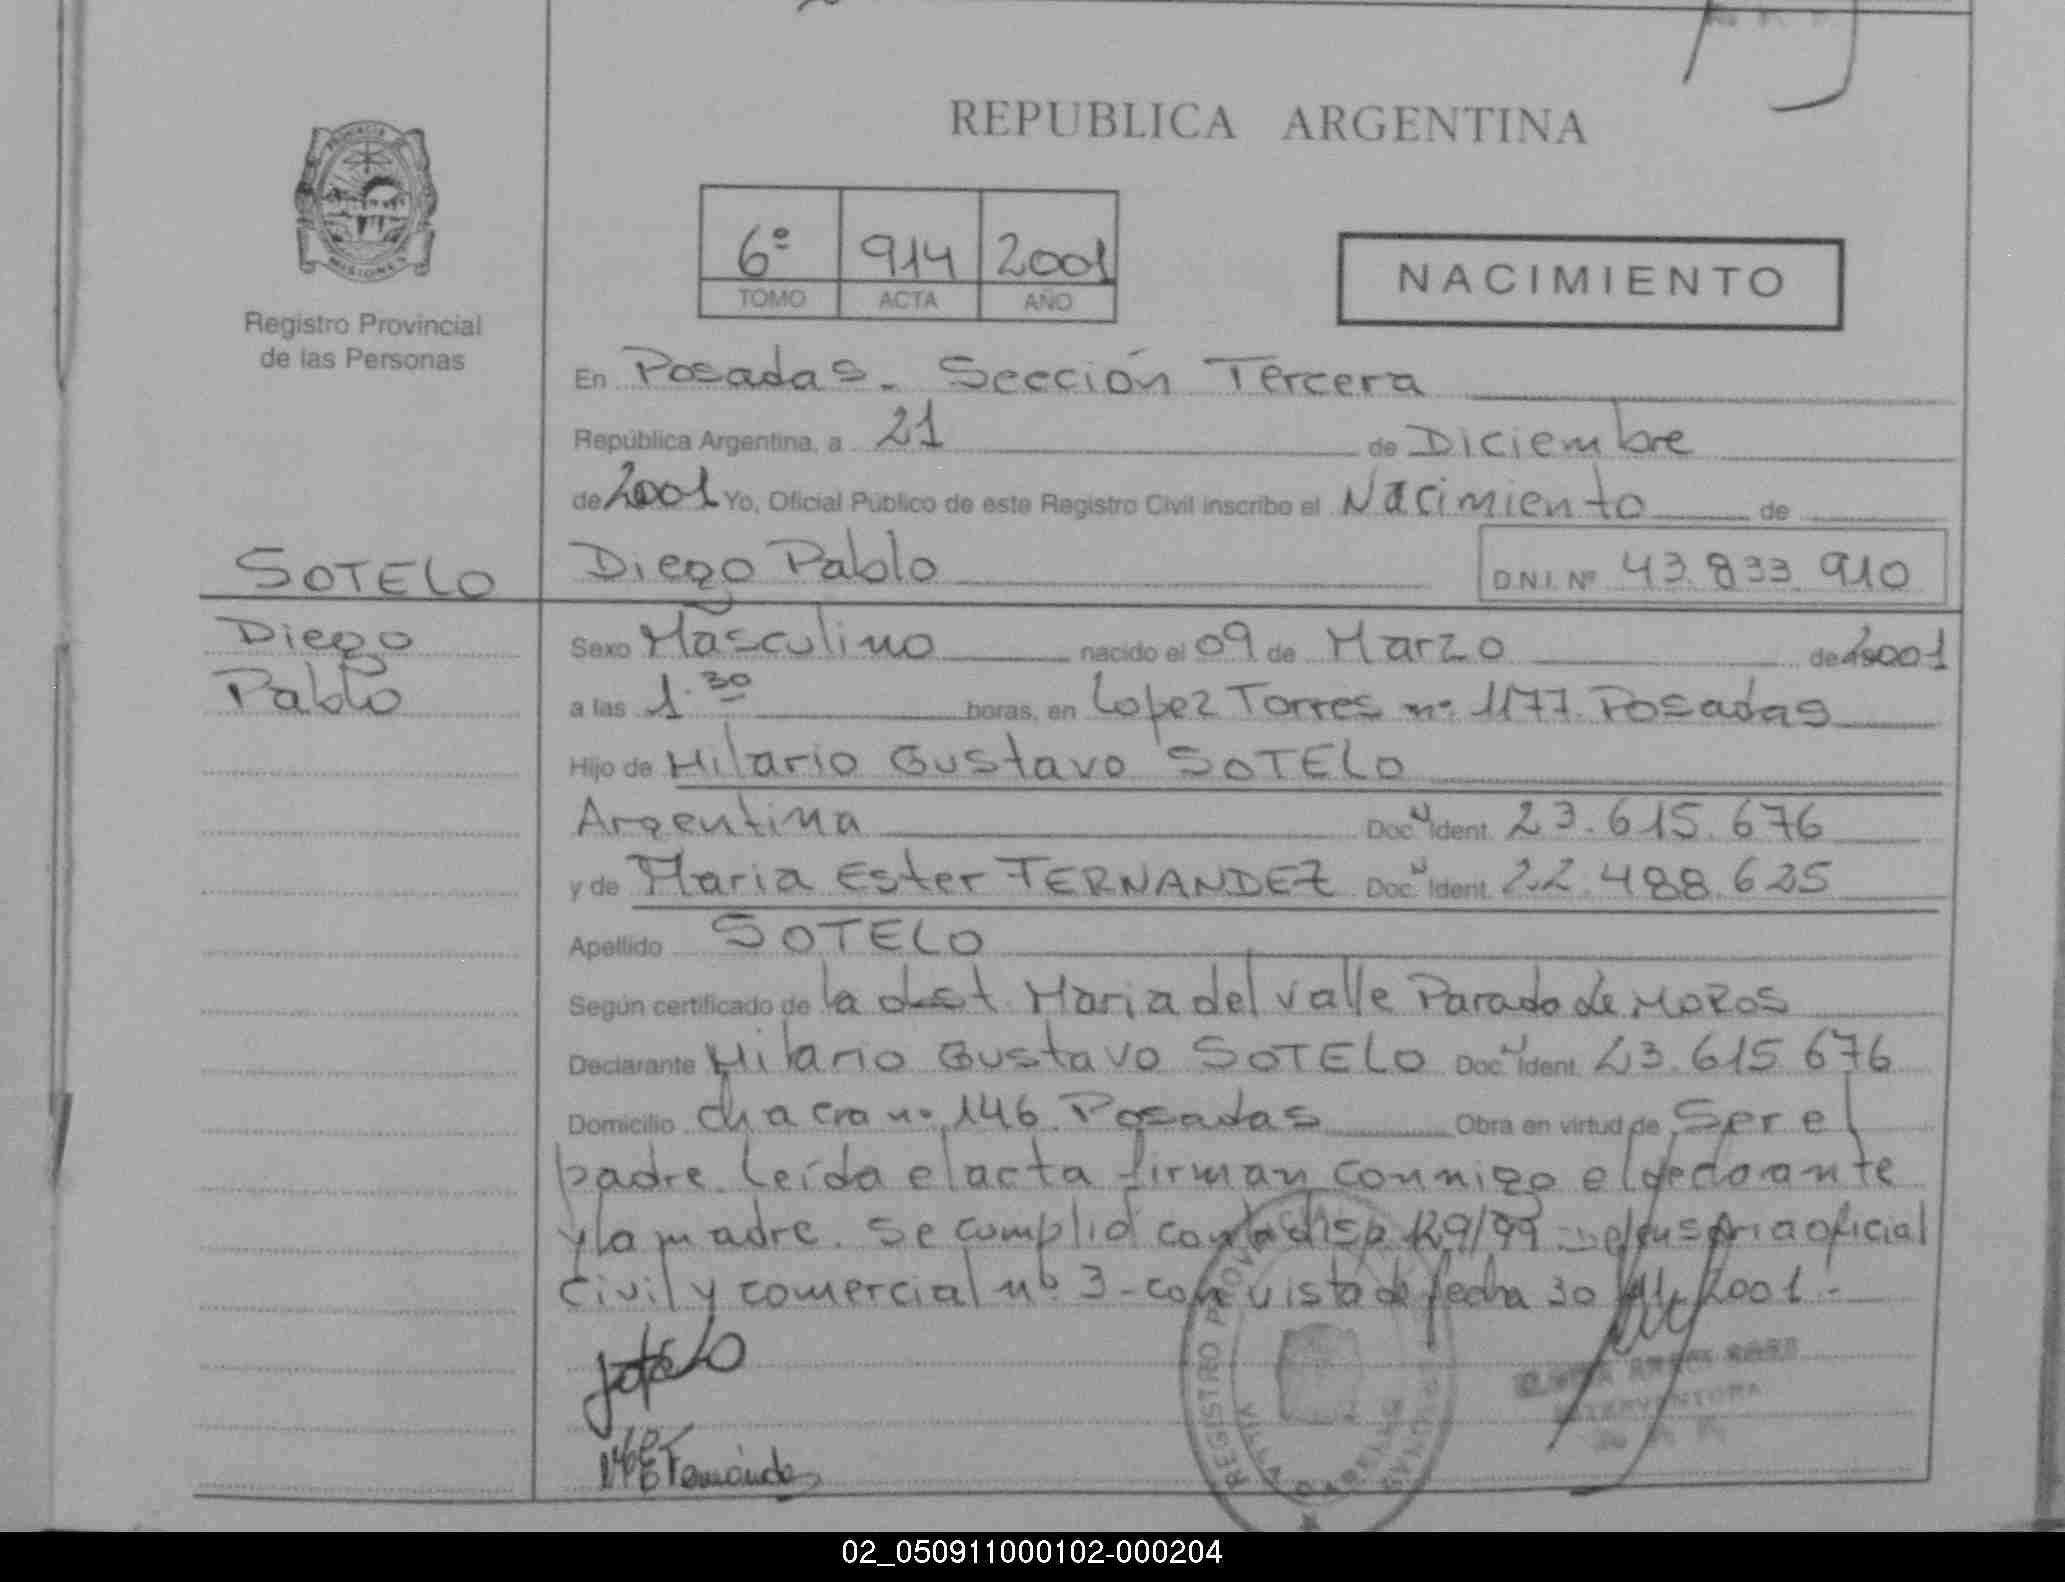 REPUBLICA ARGENTINA
6º 914 2001
TOMO ACTA AÑO
NACIMIENTO
MISIONES
Registro Provincial
de las Personas
En Posadas. Sección Tercera
República Argentina, a 21 de Diciembre
de 2001 Yo, Oficial Público de este Registro Civil inscribo el Nacimiento de
SOTELO
Diego Pablo D.N.I. Nº 43.833.910
Diego
Pablo
Sexo Masculino nacido el 09 de Marzo de 2001
a las 1.30 horas, en Lopez Torres nº 1177. Posadas
Hijo de Hilario Gustavo SOTELO
Argentina Doc. Ident. 23.615.676
y de Maria Ester FERNANDEZ Doc. Ident. 22.488.625
Apellido SOTELO
Según certificado de la obst. Maria del Valle Parada de MOROS
Declarante Hilario Gustavo SOTELO Doc. Ident. 23.615.676
Domicilio chacra nº 146. Posadas Obra en virtud de Ser el
padre. Leída el acta firman conmigo el declarante
y la madre. Se cumplió con la disp. 129/99 - defensoria oficial
Civil y comercial nº 3 - con vista de fecha 30/11/2001.-
Sotelo
Fernández
REGISTRO
INTERVENTORA
02_050911000102-000204